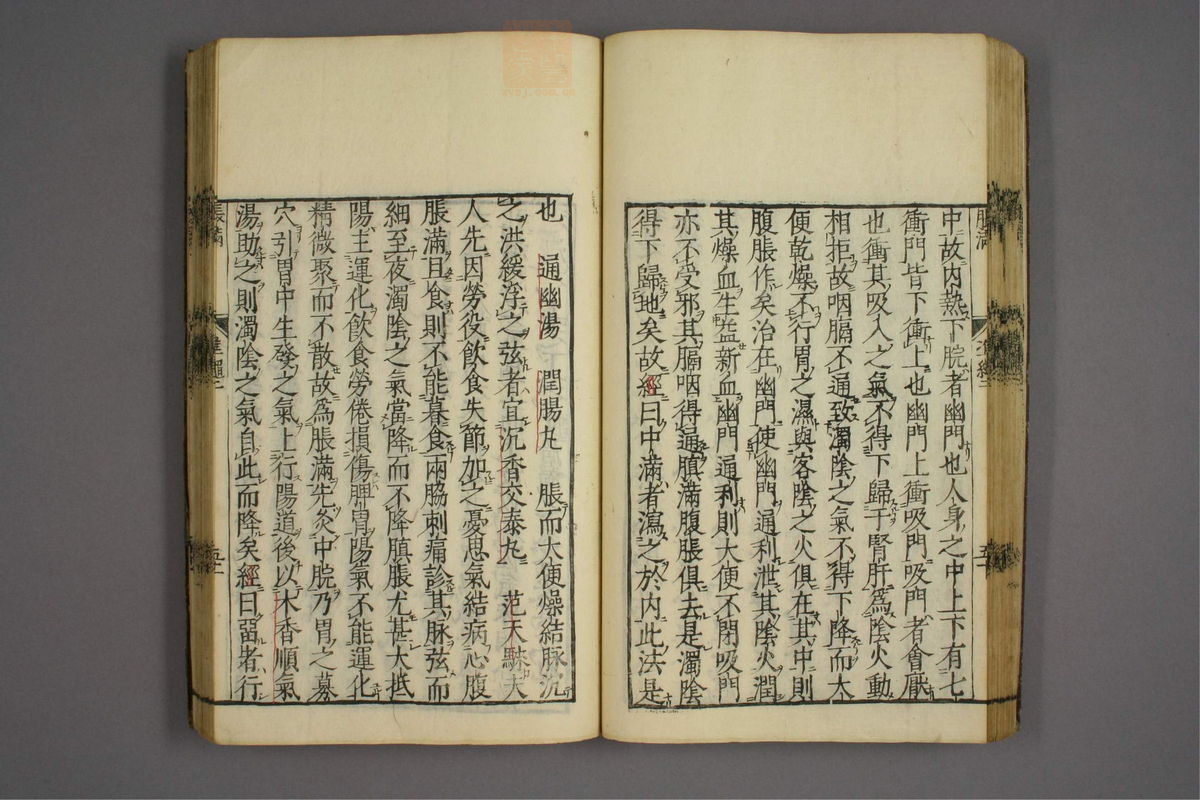 中故内熱下脘者幽門也人身之中上下有七
衝門皆下衝上也幽門上衝吸門吸門者會厭
也衝其吸入之氣不得下歸于腎肝爲陰火動
相拒故咽膈不通致濁陰之氣不得下降而大
便乾燥不行胃之濕與客陰之火俱在其中則
腹脹作矣治在幽門使幽門通利泄其陰火潤
其燥血生益新血幽門通利則大便不閉吸門
亦不受邪其膈咽得通䐜滿腹脹俱去是濁陰
得下歸地矣故經曰中滿者瀉之於内此法是
也　通幽湯　潤腸丸　脹而大便燥結脉沉
之洪緩浮之弦者宜沉香交泰丸　范天騋夫
人先因勞役飲食失節加之憂思氣結病心腹
脹滿且食則不能暮食兩脇刺痛診其脉弦而
細至夜濁陰之氣當降而不降䐜脹尤甚大抵
陽主運化飲食勞倦損傷脾胃陽氣不能運化
精微聚而不散故爲脹滿先灸中脘乃胃之募
穴引胃中生發之氣上行陽道後以木香順氣
湯助之則濁陰之氣自此而降矣經曰留者行
脹滿